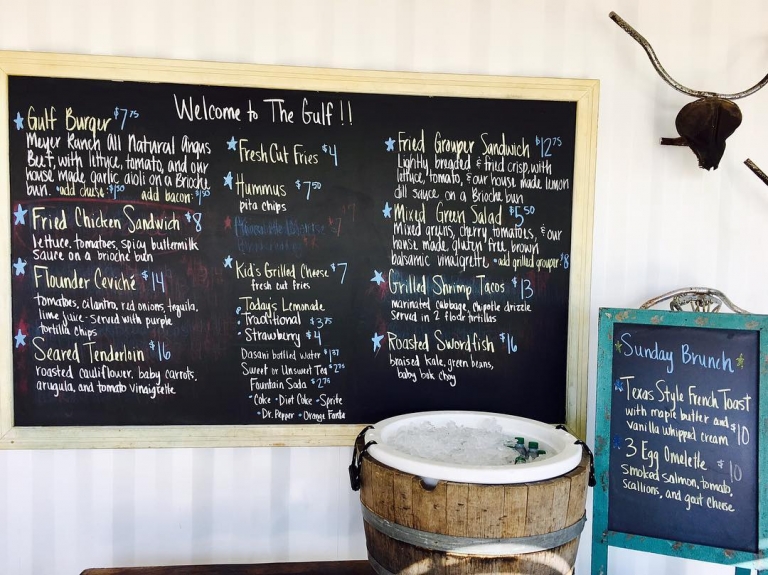 Welcome to The Gulf!!
Gulf Burger $7.75
Meyer Ranch All Natural Angus
Beef, with lettuce, tomato, and our
house made garlic aioli on a Brioche
bun. *add cheese: $1.50 add bacon: $1.50
Fried Chicken Sandwich $8
lettuce, tomatoes, spicy buttermilk
sauce on a brioche bun
Flounder Ceviché $14
tomatoes, cilantro, red onions, tequila,
lime juice - served with purple
tortilla chips
Seared Tenderloin $16
roasted cauliflower, baby carrots,
arugula, and tomato vinaigrette
Fresh Cut Fries $4
Hummus $7.50
pita chips
Kid's Grilled Cheese $7
fresh cut fries
Today's Lemonade
Traditional $3.75
Strawberry $4
Dasani bottled water
Sweet or Unsweet Tea $2.75
Fountain Soda $2.75
- Coke - Diet Coke - Sprite
- Dr. Pepper - Orange Fanta
Fried Grouper Sandwich $12.75
Lightly breaded & fried crisp, with
lettuce, tomato, & our house made lemon
dill sauce on a Brioche bun
Mixed Green Salad $5.50
Mixed greens, cherry tomatoes, & our
house made, gluten free, brown
balsamic vinaigrette *add grilled grouper: $8
Grilled Shrimp Tacos $13
marinated cabbage, chipotle drizzle
served in 2 flour tortillas
Roasted Swordfish $16
braised kale, green beans,
baby bok choy
Sunday Brunch
Texas Style French Toast
with maple butter and
vanilla whipped cream $10
3 Egg Omelette $10
smoked salmon, tomato,
scallions, and goat cheese